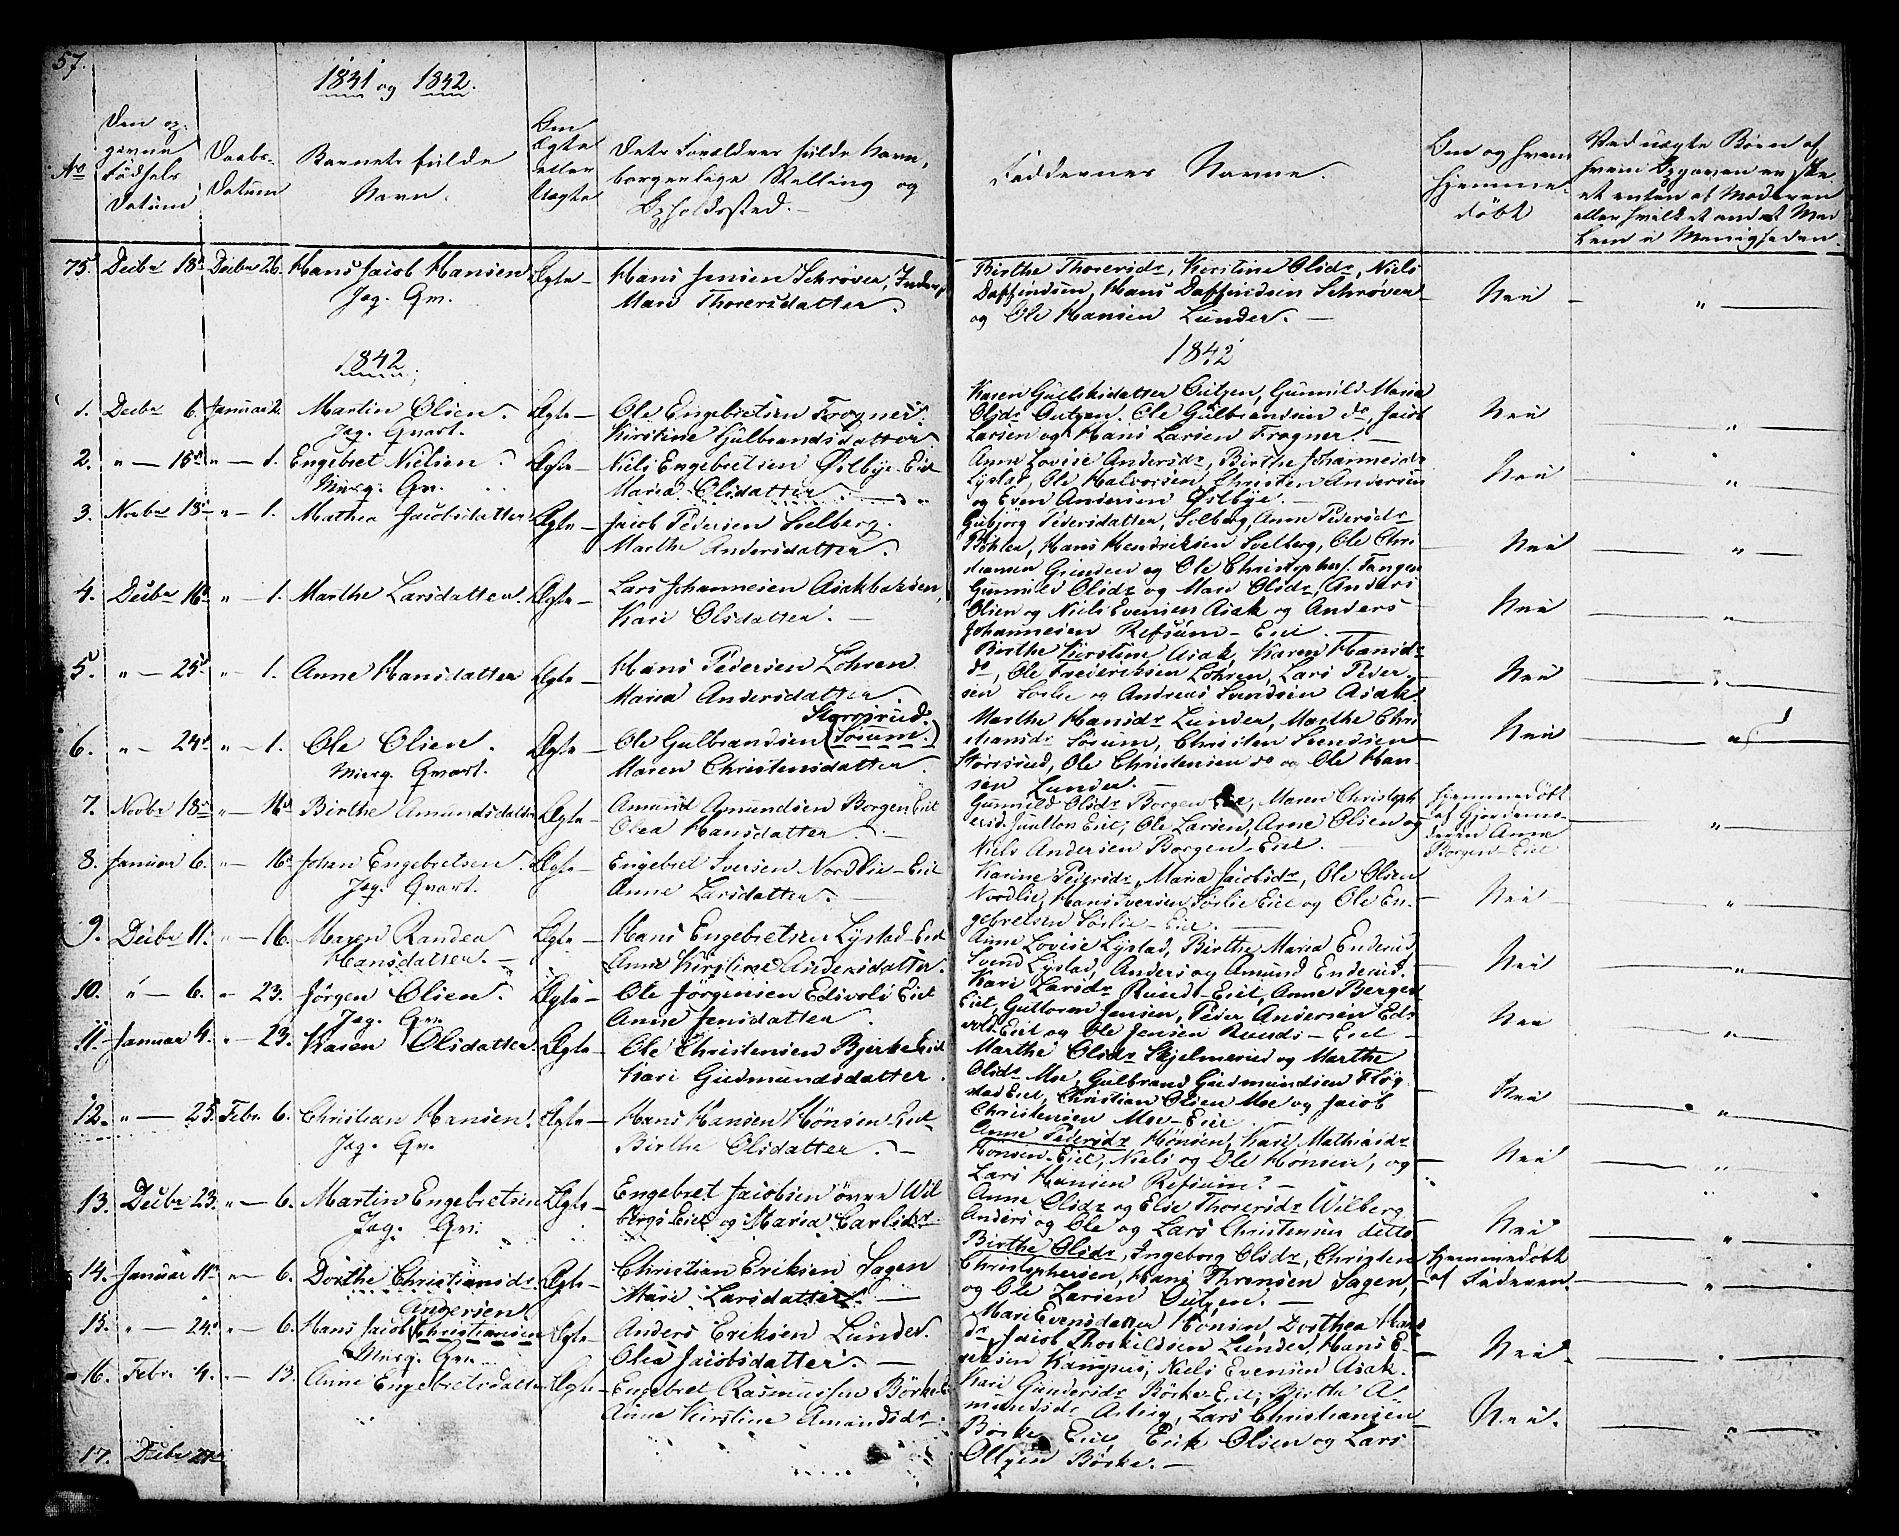 57.
1841 og 1842.
No
Den op-
givne
Fødsels
Datum
Daabs-
Datum
Barnets fulde
Navn.
Om
Ægte
eller
Uægte
Dets Forældres fulde Navn,
borgerlige Stilling og
Opholdssted.
Faddernes Navne.
Om og hvem
hjemme-
døbt
Ved uægte Børn af
hvem Opgaven er ske
et enten af Moderen
eller hvilket andet Med
lem i Menigheden.
75. Decbr 18. Decbr 26. Hans Jacob Hansen Ægte- Hans Jensen Schrøver,
Jag. Qv. Mari Thorersdatter.
Birthe Thorersdr, Kirstine Olsdr, Niels
Daffindsen, Hans Daffindsen Schrøver
og Ole Hansen Lunder. —
Nei "
1842
1842
1. Decbr 6. Januar 2. Martin Olsen. Ægte- Ole Engebretsen Frogner.
Jag. Qvart. Kirstine Gulbrandsdatter
Karen Gulliksdatter Gutzen, Gunnild Maria
Olsdr Gutzen, Ole Gulbrandsen do, Jacob
Larsen og Hans Larsen Frogner. —
Nei "
2. " — 15. " — 1. Engebret Nielsen. Ægte- Niels Engebretsen Østbye-Eiet
Mierg. Qv. Maria Olsdatter.
Anne Lovise Andersdr, Birthe Johannesdr
Lystad, Ole Halvorsen, Christen Andersen
og Even Andersen Østbye. —
Nei "
3. Novbr 18. " — 1. Mathea Jacobsdatter Ægte- Jacob Pedersen Solberg.
Marthe Andersdatter.
Gubjörg Pedersdatter, Solberg, Anne Pedersdr
Böhler, Hans Hendriksen Solberg, Ole Chri
stiansen Grinden og Ole Christophers. Tangen
Nei "
4. Decbr 16. " — 1. Marthe Larsdatter. Ægte- Lars Johannesen Asakbakken,
Kari Olsdatter. —
Gunnild Olsdr og Mari Olsdr, Anders
Olsen og Niels Evensen Asak og Anders
Johannesen Refsum-Eiet.
Nei "
5. " — 25. " — 1. Anne Hansdatter Ægte- Hans Pedersen Löhren
Maria Andersdatter.
Birthe Kirstine Asak, Karen Hansdr
do, Ole Frederiksen Löhren, Lars Peder
sen Sørlie og Andreas Svendsen Asak.
Nei
6. " — 24. " — 1. Ole Olsen. Ægte- Ole Gulbrandsen (Sörum.) Storsrud.
Mierg. Qvart. Maren Christensdatter.
Marthe Hansdr Lunder, Marthe Chri
stiansdr Sörum, Christen Svendsen
Storsrud, Ole Christensen do og Ole Han-
sen Lunder.
Nei "
7. Novbr 18. " — 16. Birthe Amundsdatter Ægte- Amund Amundsen Borgen Eiet
Olea Hansdatter.
Gunnild Olsdr Borgen Eiet, Maren Christoph
ersd. Eiet, Ole Larsen, Arne Olsen og
Niels Andersen Borgen-Eiet.
Hjemmedøbt
af Gjordemo-
deren Anne
Borgen-Eiet
"
8. Januar 6. " — 16. Johan Engebretsen. Ægte- Engebret Iversen Nordlie-Eiet
Jag. Qvart. Anne Larsdatter. —
Karine Pedersdr, Maria Jacobsdr, Ole Olsen
Nordlie, Hans Iversen Sørlie Eiet og Ole En-
gebretsen Sørlie-Eiet. —
Nei "
9. Decbr 11. " — 16. Maren Randea Ægte- Hans Engebretsen Lystad-Eiet
Hansdatter. — Anne Kirstine Andersdatter.
Anne Lovise Lystad, Birthe Maria Enderud,
Svend Lystad, Anders og Amund Enderud.
Nei "
10. " — 6. " 23. Jörgen Olsen. Ægte- Ole Jörgensen Edsvold Eiet
Jag. Qv. Anne Jensdatter.
Kari Larsdr Ruud-Eiet, Anne Bergen
Eiet, Guttorm Jensen, Peder Andersen Eds
vold-Eiet og Ole Jensen Ruuds-Eiet
Nei "
11. Januar 4. " 23. Karen Olsdatter. Ægte- Ole Christensen Bjerke Eiet
Kari Gudmundsdatter.
Marthe Olsdr Skjelmerud og Marthe
Olsdr Moe, Gulbrand Gudmundsen Fløg
stad Eiet, Christian Olsen Moe og Jacob
Christensen Moe-Eiet.
Nei "
12. " — 25. Febr. 6. Christian Hansen. Ægte- Hans Hansen Hönsen-Eiet
Jag. Qv. Birthe Olsdatter. —
Anne Pedersdr Hönsen, Kari Mathisdr
Hönsen-Eiet, Niels og Ole Hönsen, og
Lars Hansen Refsum. —
Nei "
13. Decbr 23. " — 6. Martin Engebretsen Ægte- Engebret Jacobsen övre Wil
Jag. Qv. bergs Eiet og Maria Carlsdr.
Anne Olsdr og Elise Thorersdr Wilberg
Anders og Ole og Lars Christensen ditto
Nei "
14. Januar 11. " — 6. Dorthe Christiansdr Ægte- Christian Eriksen Sagen
Mari Larsdatter. —
Birthe Olsdr, Ingeborg Olsdr, Christen
Christophersen, Hans Thronsen Sagen,
og Ole Larsen Gutzen. —
Hjemmedøbt
af Faderen.
"
15. " — 24. " — 6. Hans Jacob Christiansen Andersen Ægte- Anders Eriksen Lunder.
Mierg. Qv. Olea Jacobsdatter. —
Mari Evensdatter Hönsen, Dorthea Hans
dr, Jacob Thoskildsen Lunder, Hans E-
riksen Kangsrud, Niels Evensen Asak.
Nei "
16. Febr. 4. " — 13. Anne Engebretsdatter Ægte- Engebret Rasmussen Börke E
Anne Kirstine Amundsdr.
Kari Gundersdr Börke-Eiet, Birthe A-
mundsdr, Lars Christiansen
Börke Eiet, Erik Olsen og Lars
Olsen Börke. —
Nei. "
17. Decbr